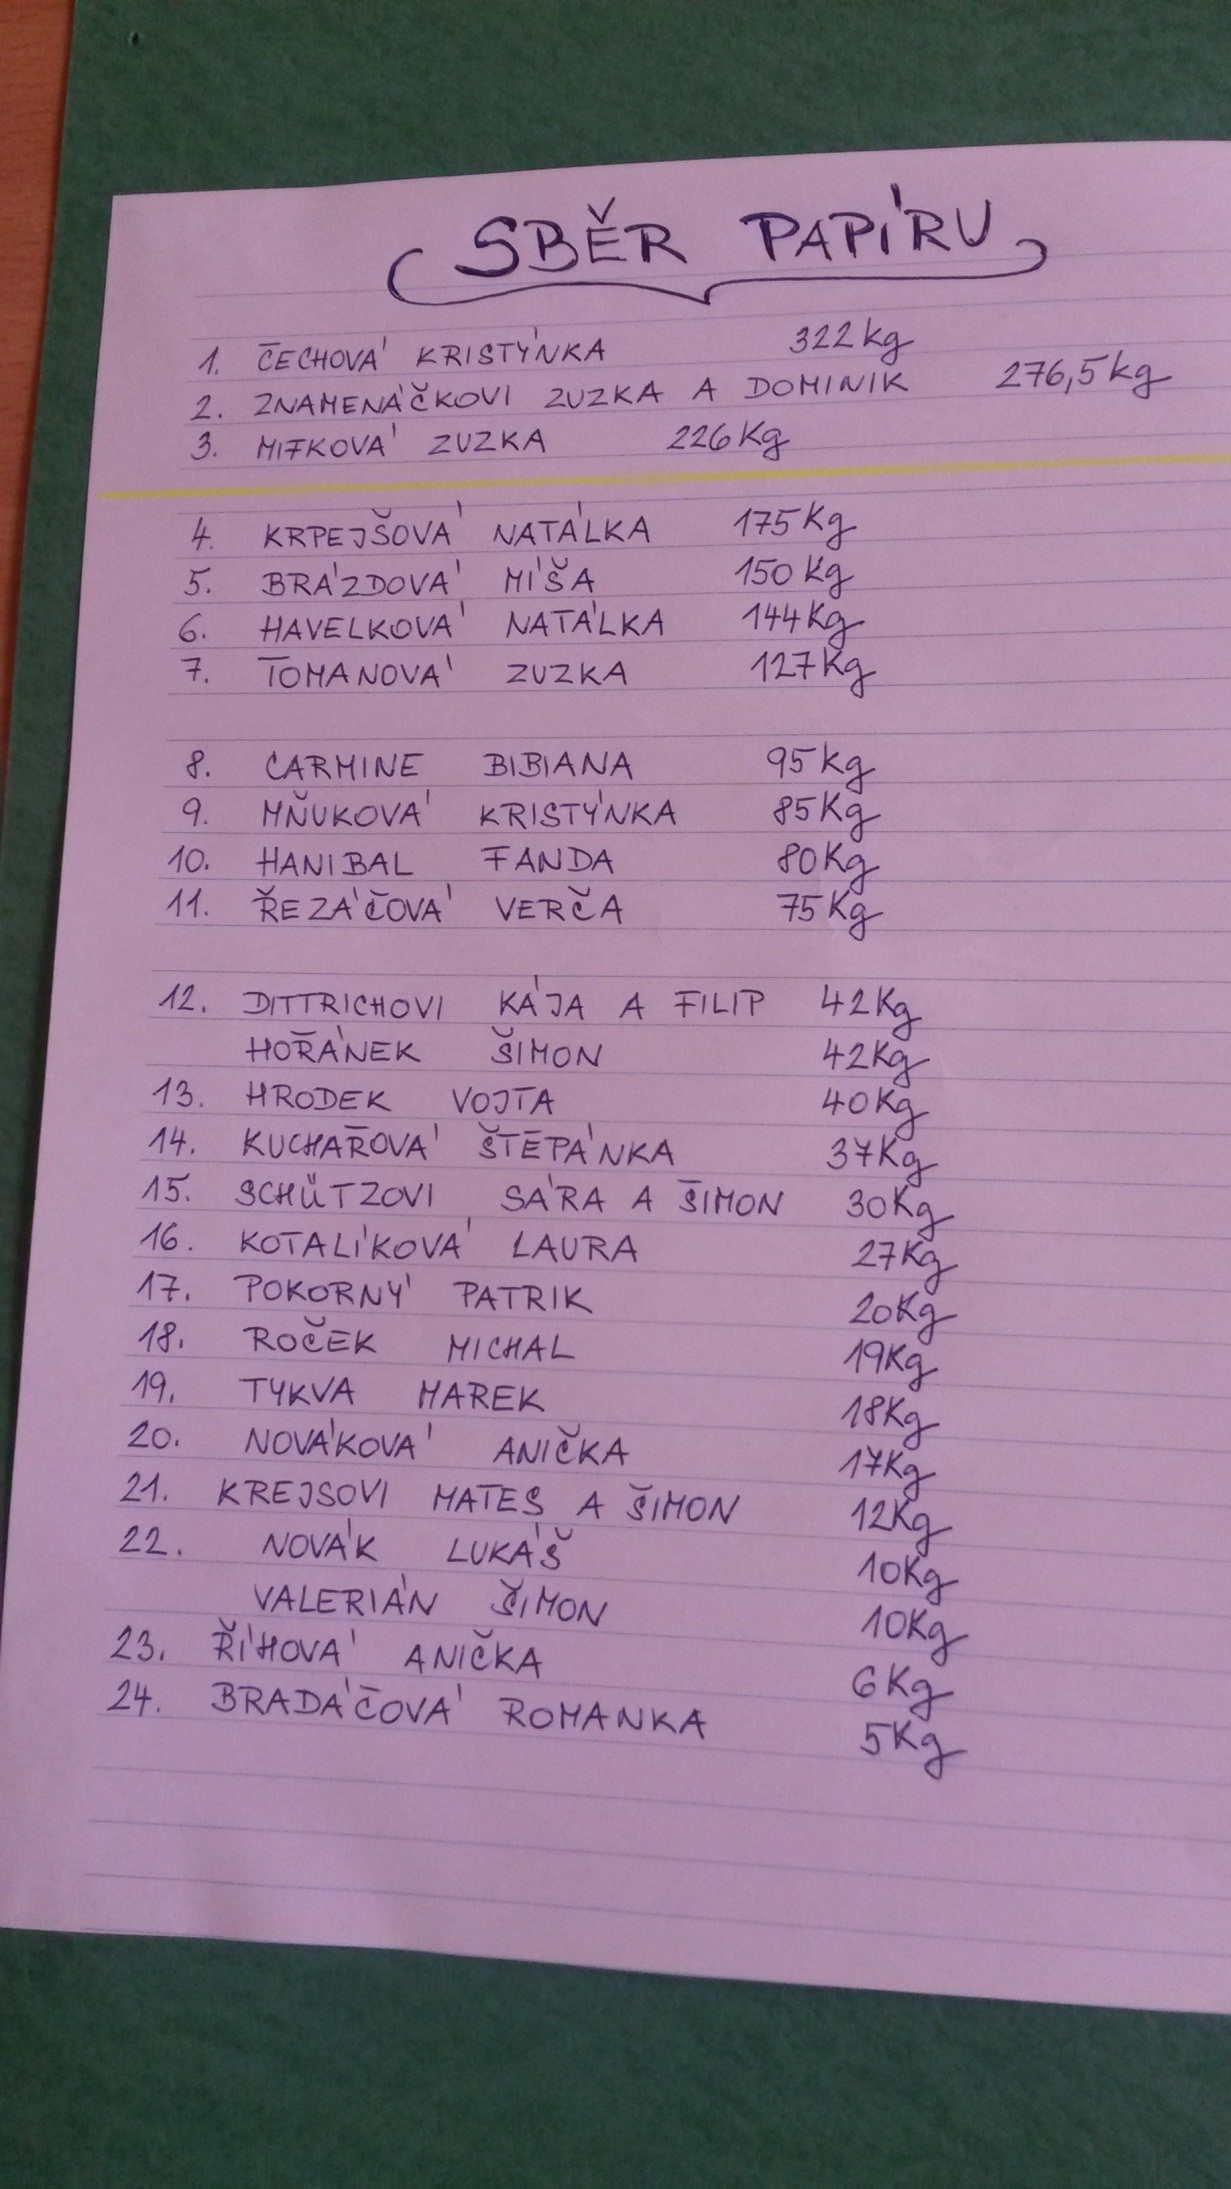 SBĚR PAPÍRU
1. ČECHOVÁ KRISTÝNKA 322 kg
2. ZNAMENÁČKOVI ZUZKA A DOMINIK 276,5 kg
3. MIFKOVÁ ZUZKA 226 Kg
4. KRPEJŠOVÁ NATÁLKA 175 Kg
5. BRÁZDOVÁ MÍŠA 150 Kg
6. HAVELKOVÁ NATÁLKA 144 Kg
7. TOMANOVÁ ZUZKA 127 Kg
8. CARMINE BIBIANA 95 kg
9. MŇUKOVÁ KRISTÝNKA 85 Kg
10. HANIBAL FANDA 80 Kg
11. ŘEZÁČOVÁ VERČA 75 Kg
12. DITTRICHOVI KÁJA A FILIP 42 Kg
HOŘÁNEK ŠIMON 42 Kg
13. HRODEK VOJTA 40 Kg
14. KUCHAŘOVÁ ŠTĚPÁNKA 37 Kg
15. SCHÜTZOVI SÁRA A ŠIMON 30 Kg
16. KOTALÍKOVÁ LAURA 27 Kg
17. POKORNÝ PATRIK 20 Kg
18. ROČEK MICHAL 19 Kg
19. TYKVA MAREK 18 Kg
20. NOVÁKOVÁ ANIČKA 17 Kg
21. KREJSOVI MATES A ŠIMON 12 Kg
22. NOVÁK LUKÁŠ 10 Kg
VALERIÁN ŠIMON 10 Kg
23. ŘÍHOVÁ ANIČKA 6 Kg
24. BRADÁČOVÁ ROMANKA 5 Kg